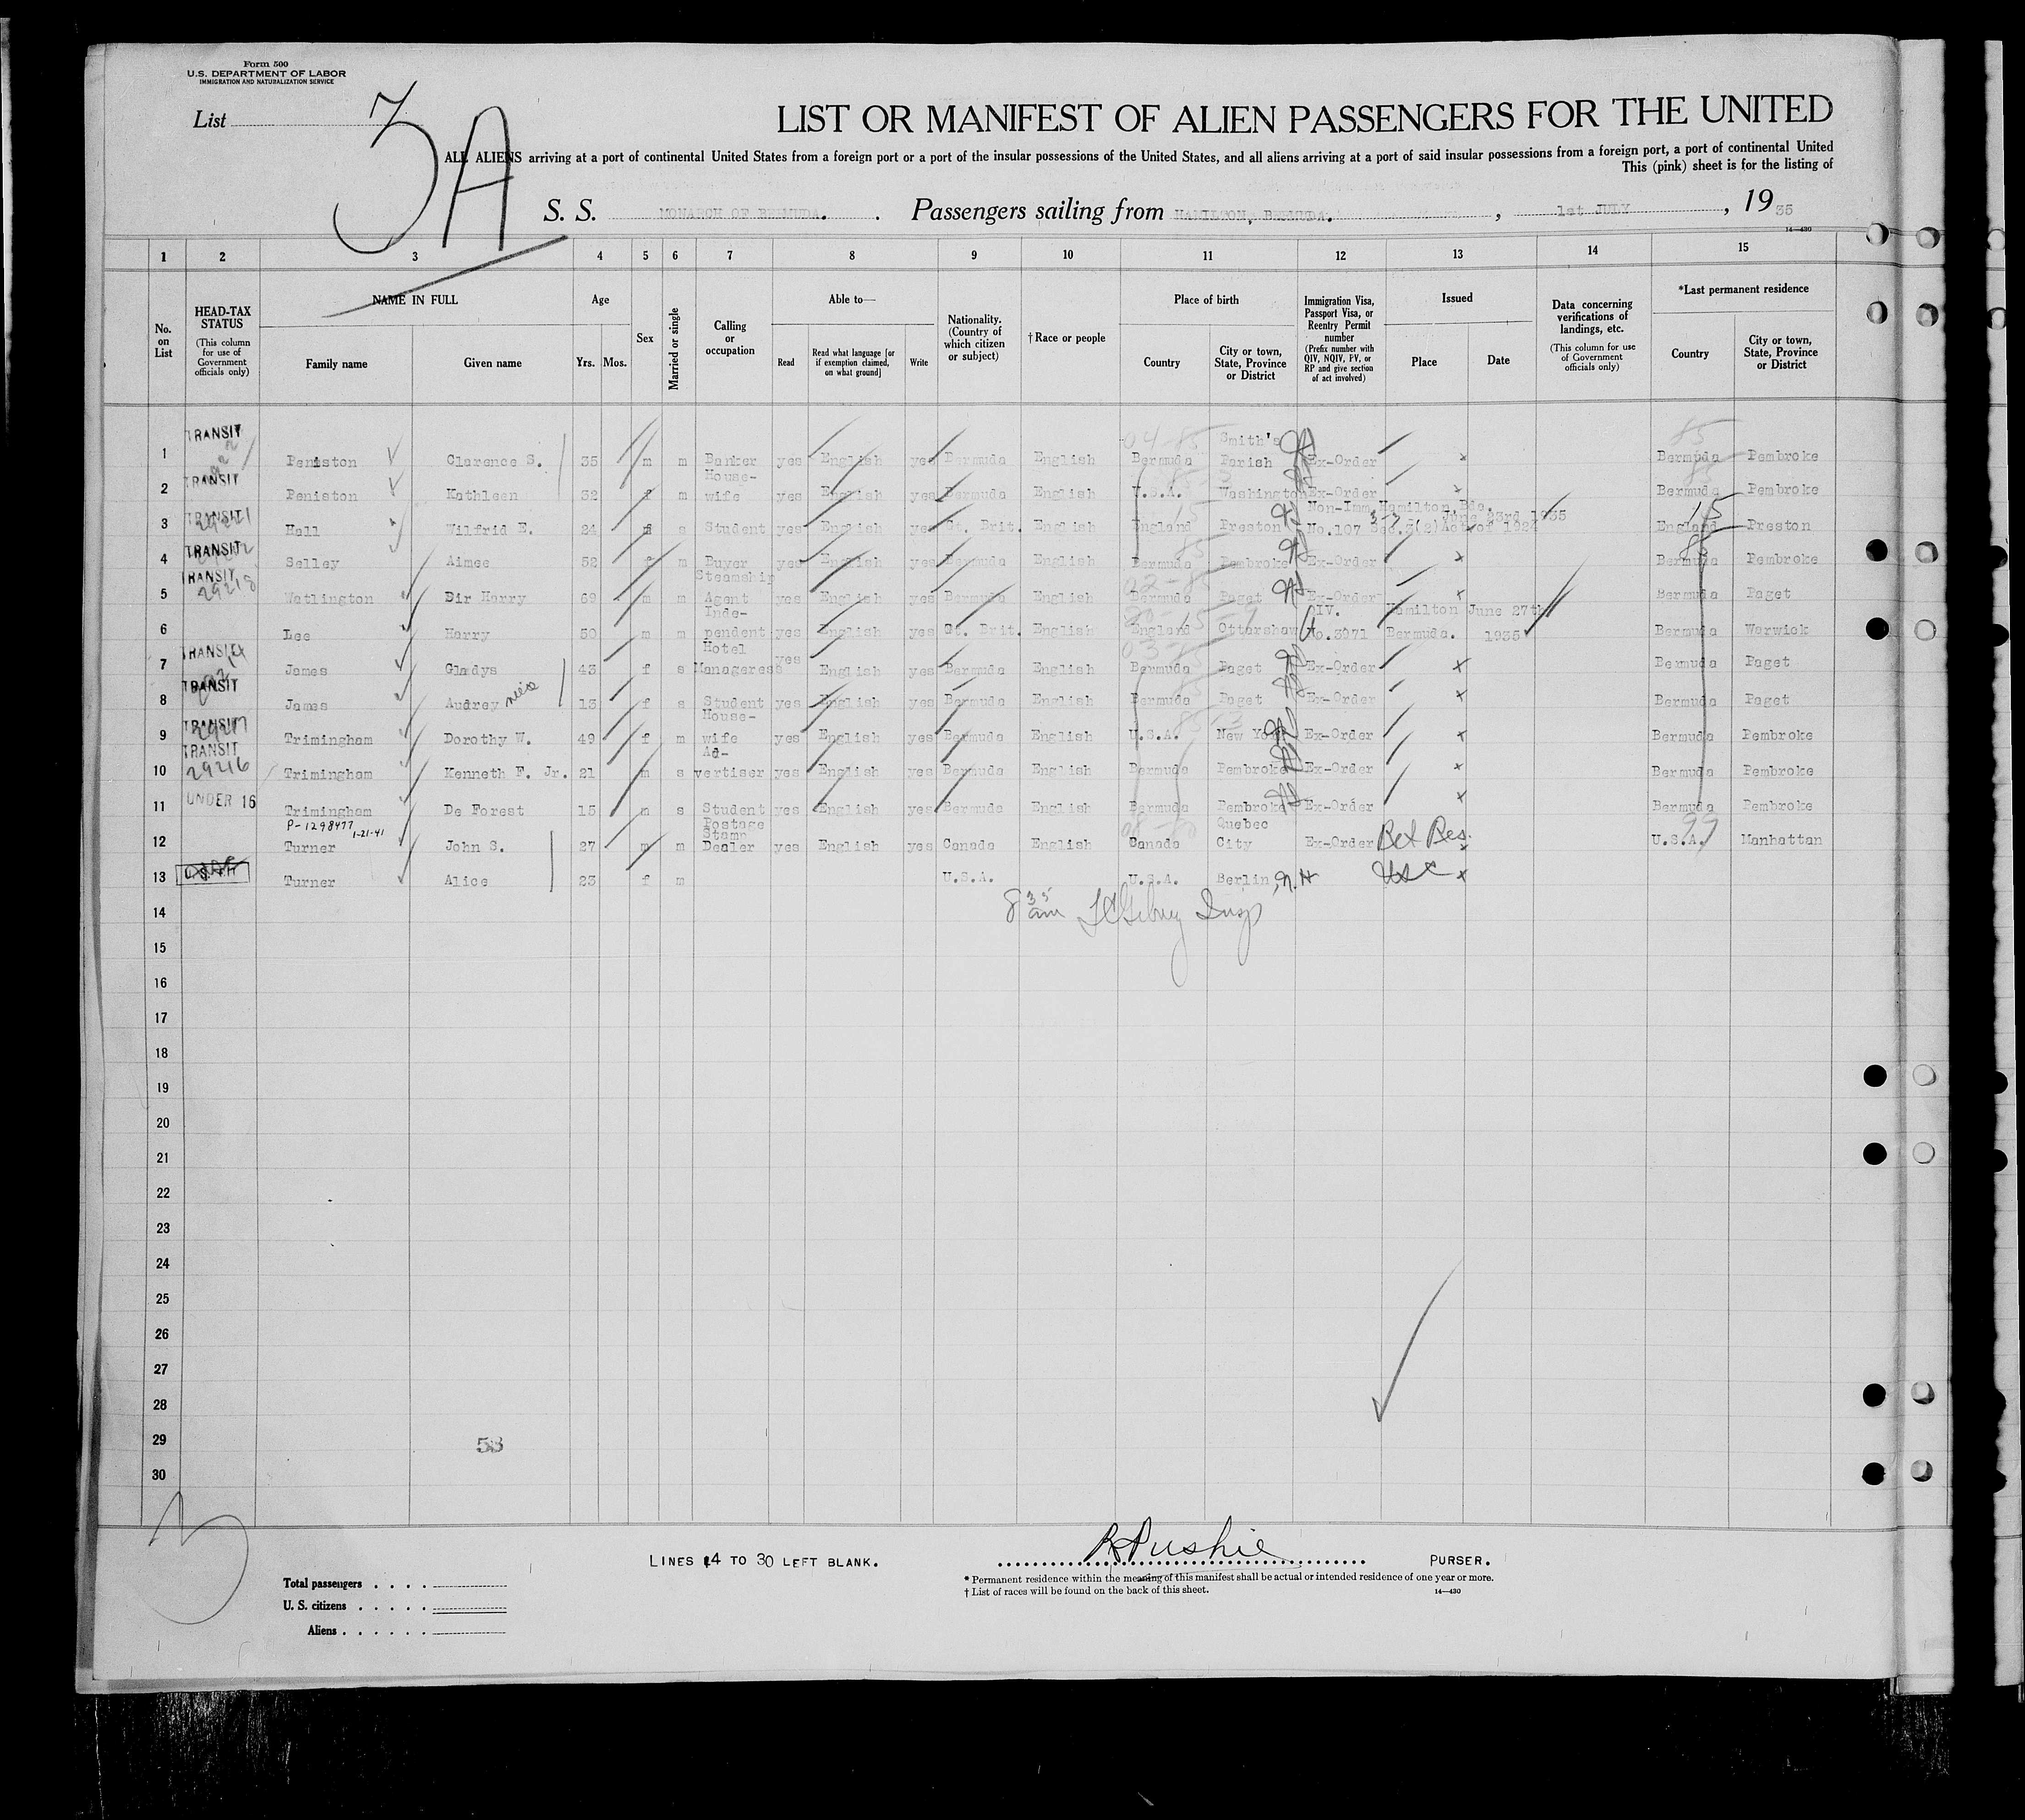 Form 500
U.S. DEPARTMENT OF LABOR
IMMIGRATION AND NATURALIZATION SERVICE
List
3A
LIST OR MANIFEST OF ALIEN PASSENGERS FOR THE UNITED
ALL ALIENS arriving at a port of continental United States from a foreign port or a port of the insular possessions of the United States, and all aliens arriving at a port of said insular possessions from a foreign port, a port of continental United
This (pink) sheet is for the listing of
S. S. MONARCH OF BERMUDA. Passengers sailing from HAMILTON, BERMUDA. , 1st JULY , 19 35
14—430
1 2 3 4 5 6 7 8 9 10 11 12 13 14 15
No. on List
HEAD-TAX STATUS (This column for use of Government officials only)
NAME IN FULL
Family name Given name
Age
Yrs. Mos.
Sex
Married or single
Calling or occupation
Able to—
Read Read what language [or if exemption claimed, on what ground] Write
Nationality. (Country of which citizen or subject)
† Race or people
Place of birth
Country City or town, State, Province or District
Immigration Visa, Passport Visa, or Reentry Permit number (Prefix number with QIV, NQIV, PV, or RP and give section of act involved)
Issued
Place Date
Data concerning verifications of landings, etc. (This column for use of Government officials only)
*Last permanent residence
Country City or town, State, Province or District
1 TRANSIT Peniston Clarence S. 35 m m Banker yes English yes Bermuda English Bermuda Smith's Parish Ex-Order x Bermuda Pembroke
2 TRANSIT Peniston Kathleen 32 f m House-wife yes English yes Bermuda English U.S.A. Washington Ex-Order x Bermuda Pembroke
3 TRANSIT Hall Wilfrid E. 24 s Student yes English yes Gt. Brit. English England Preston Non-Imm. No.107 Sec.3(2)Act of 1924 Hamilton Bda. June 23rd 1935 England Preston
4 TRANSIT Selley Aimee 52 f m Buyer yes English yes Bermuda English Bermuda Pembroke Ex-Order x Bermuda Pembroke
5 TRANSIT 29218 Watlington Sir Harry 69 m m Steamship Agent yes English yes Bermuda English Bermuda Paget Ex-Order x Bermuda Paget
6 Lee Harry 50 m m Inde-pendent yes English yes Gt. Brit. English England Ottershaw IV. No.3971 Hamilton Bermuda. June 27th 1935 Bermuda Warwick
7 TRANSIT James Gladys 43 f s Hotel Manageress yes English yes Bermuda English Bermuda Paget Ex-Order x Bermuda Paget
8 TRANSIT James Audrey niece 13 f s Student yes English yes Bermuda English Bermuda Paget Ex-Order x Bermuda Paget
9 TRANSIT 29217 Trimingham Dorothy W. 49 f m House-wife yes English yes Bermuda English U.S.A. New York Ex-Order x Bermuda Pembroke
10 TRANSIT 29216 Trimingham Kenneth F. Jr. 21 m s Ad-vertiser yes English yes Bermuda English Bermuda Pembroke Ex-Order x Bermuda Pembroke
11 UNDER 16 Trimingham De Forest 15 m s Student yes English yes Bermuda English Bermuda Pembroke Ex-Order x Bermuda Pembroke
P-1298477 1-21-41
12 Turner John S. 27 m m Postage Stamp Dealer yes English yes Canada English Canada Quebec City Ex-Order Ret Res. x U.S.A. 99 Manhattan
13 Turner Alice 23 f m U.S.A. U.S.A. Berlin, N.H USC x
14 8 35 am Insp
15
16
17
18
19
20
21
22
23
24
25
26
27
28
29 53
30
LINES 14 TO 30 LEFT BLANK.
PURSER.
* Permanent residence within the meaning of this manifest shall be actual or intended residence of one year or more.
† List of races will be found on the back of this sheet.
14—430
Total passengers
U. S. citizens
Aliens